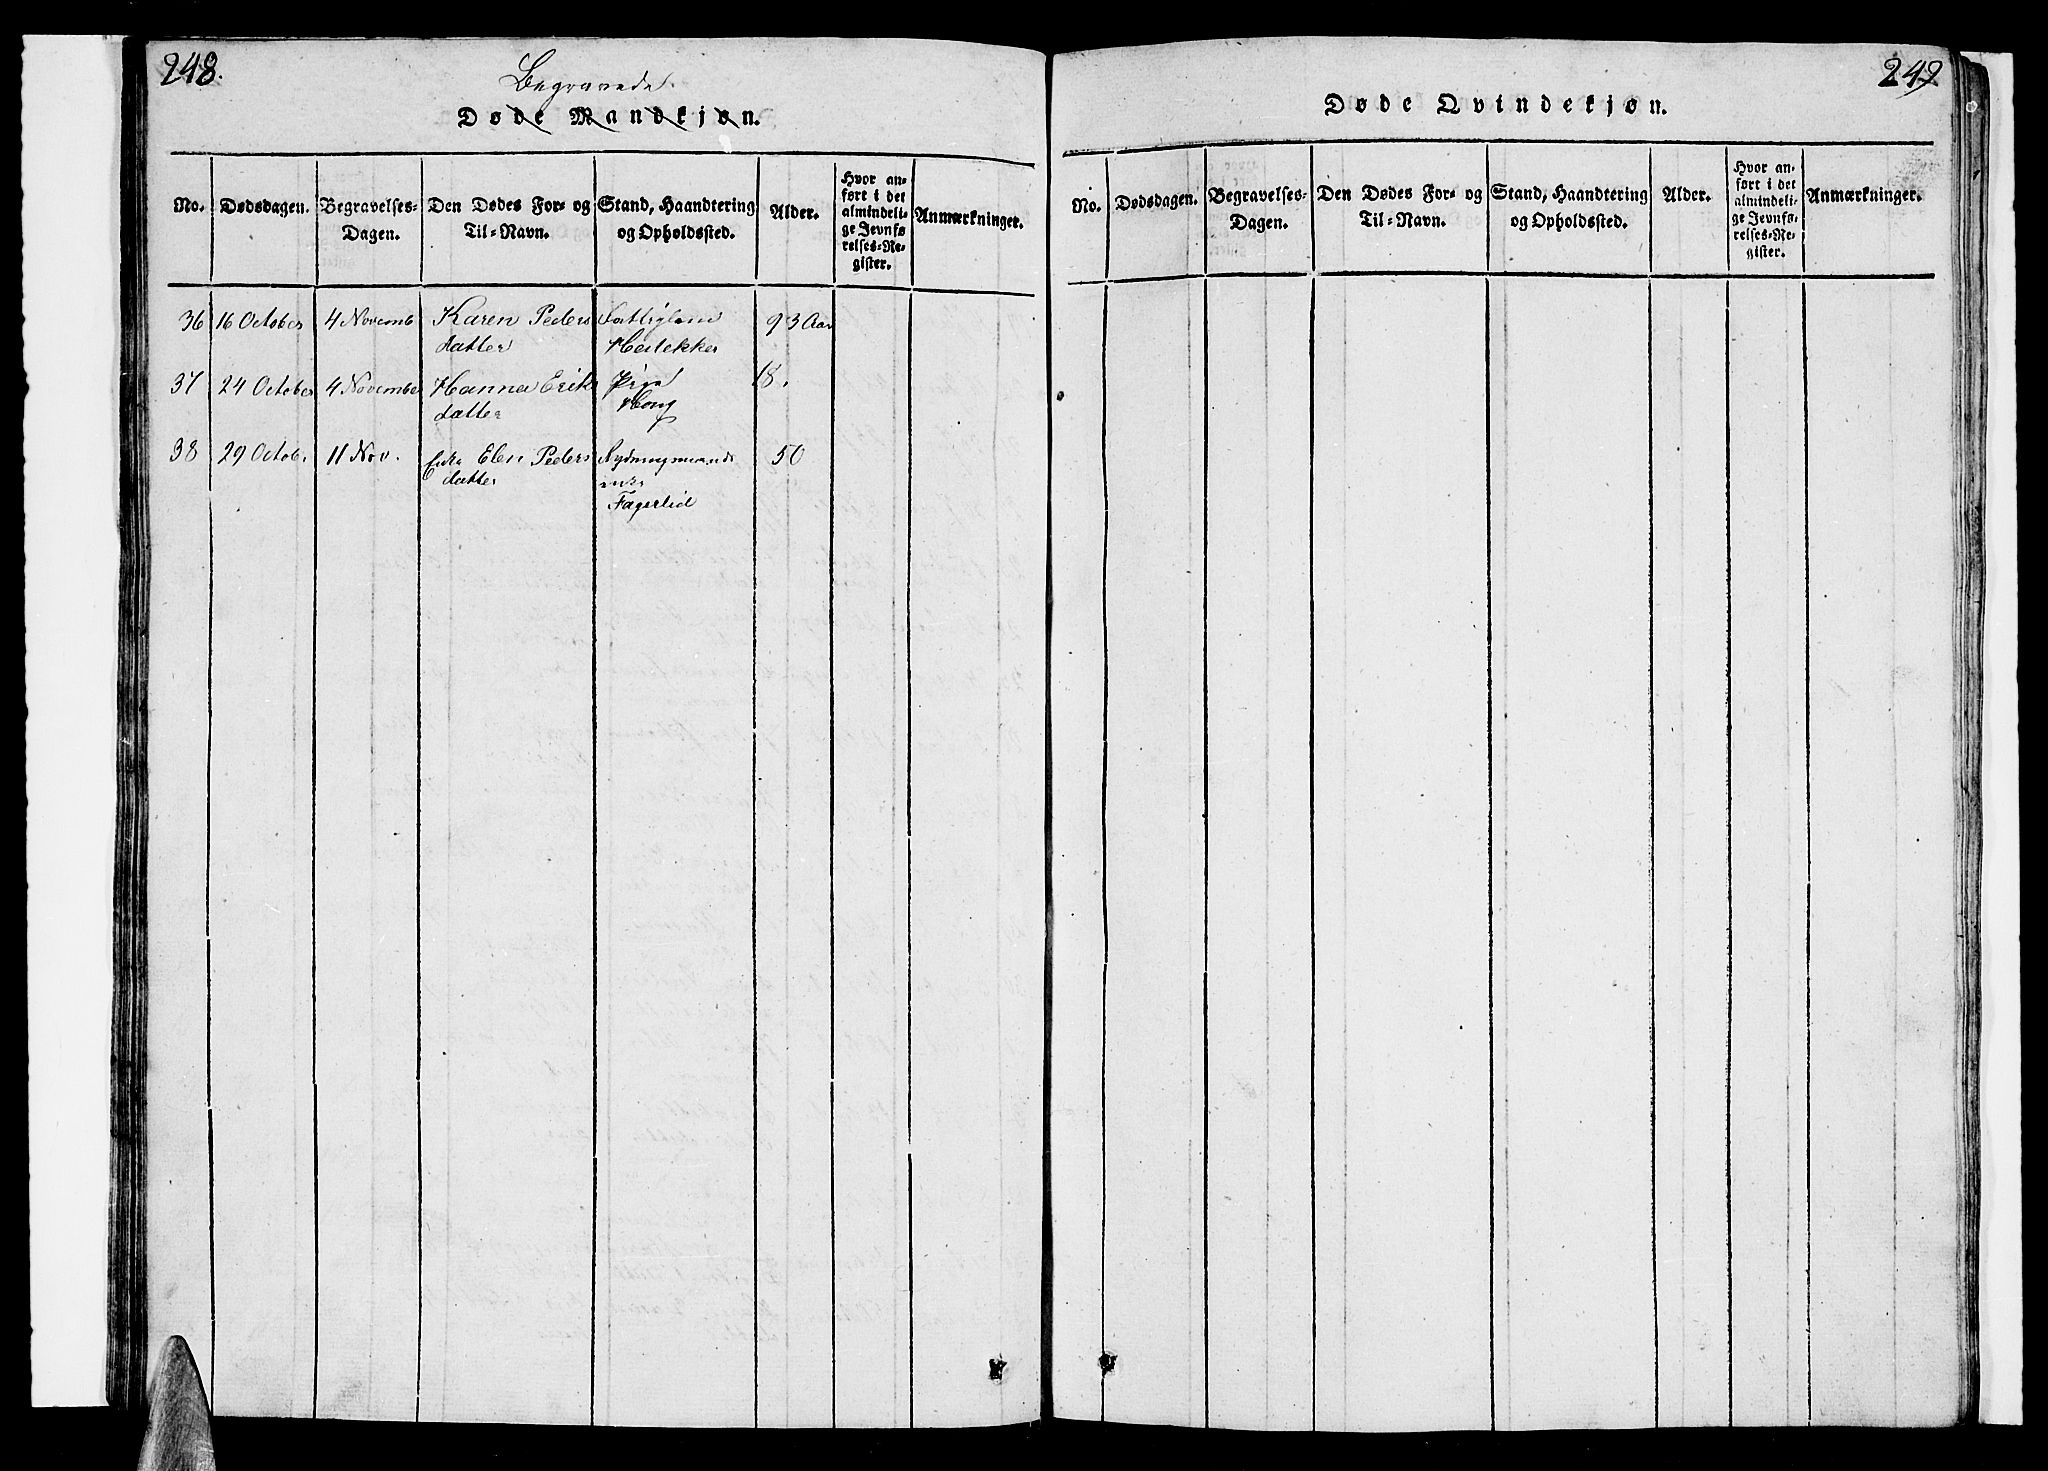 248.
Begravede
Døde Mandkjøn.
No.
Dødsdagen.
Begravelses-
Dagen.
Den Dødes For- og
Til-Navn.
Stand, Haandtering
og Opholdssted.
Alder.
Hvor an-
ført i det
almindeli-
ge Jevnfø-
relses-Re-
gister.
Anmærkninger.
36 16 October 4 Novemb Karen Peders 93 Aar
datter
37 24 October 4 November Hanna Eriks Pige 18.
datter Houg
38 29 Octob. 11 Nov. Enke Elen Peders Rydningsmands 50
datter enke
Fagerlid
249
Døde Qvindekjøn.
No.
Dødsdagen.
Begravelses-
Dagen.
Den Dødes For- og
Til-Navn.
Stand, Haandtering
og Opholdssted.
Alder.
Hvor an-
ført i det
almindeli-
ge Jevnfø-
relses-Re-
gister.
Anmærkninger.